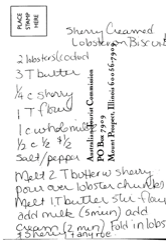 PLACE
STAMP
HERE
Sherry Creamed
Lobster on Biscuit
2 lobsters cooked
3 T butter
1/4 c sherry
1 T flour
1 c whole milk
1/2 c 1/2 & 1/2
Salt/pepper
Melt 2 T butter w sherry
pour over lobster chunks
Melt 1 T butter stir flour
add milk (5 min) add
cream (2 min) fold in lobs
& sherry
Australian Tourist Commission
PO Box 7909
Mount Prospect, Illinois 60056-7909